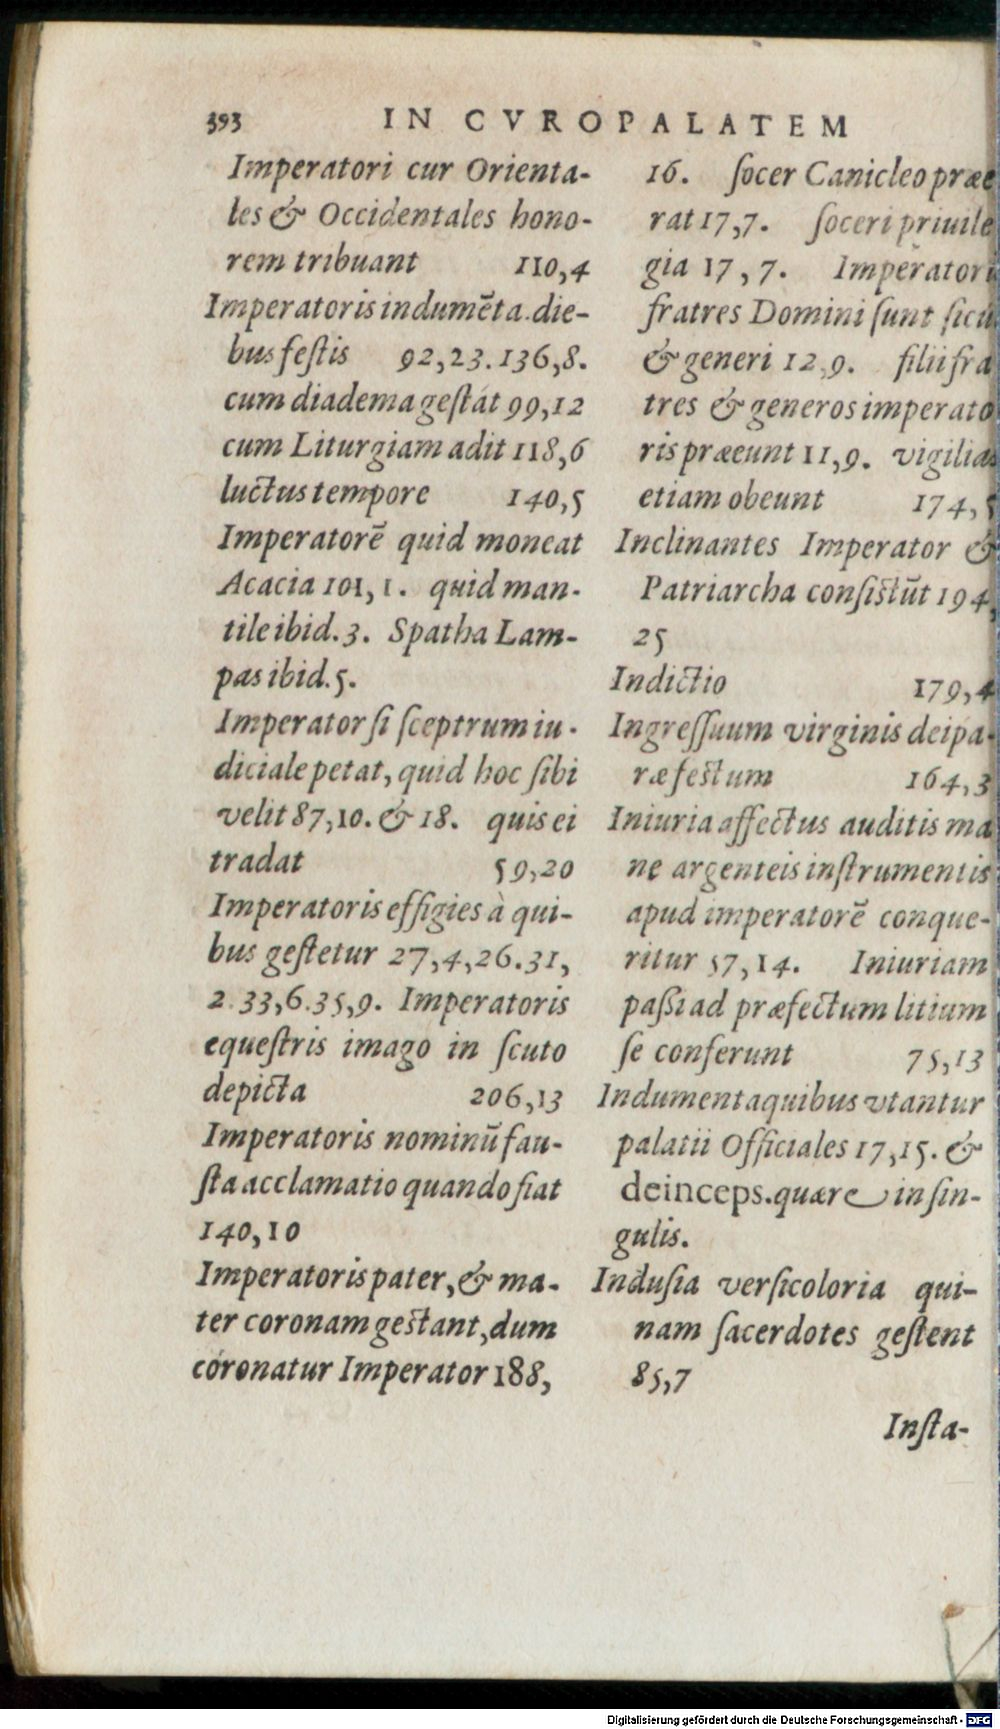 393 IN CVROPALATEM
Imperatori cur Orienta-
les & Occidentales hono-
rem tribuant 110,4
Imperatoris indumēta die-
bus festis 92,23.136,8.
cum diadema gestát 99,12
cum Liturgiam adit 118,6
luctus tempore 140,5
Imperatorē quid moneat
Acacia 101,1. quid man-
tile ibid.3. Spatha Lam-
pas ibid.5.
Imperator si sceptrum iu-
diciale petat, quid hoc sibi
velit 87,10. & 18. quis ei
tradat 59,20
Imperatoris effigies à qui-
bus gestetur 27,4,26.31,
2.33,6.35,9. Imperatoris
equestris imago in scuto
depicta 206,13
Imperatoris nominū fau-
sta acclamatio quando fiat
140,10
Imperatoris pater, & ma-
ter coronam gestant, dum
coronatur Imperator 188,
16. socer Canicleo præe
rat 17,7. soceri priuile
gia 17,7. Imperatori
fratres Domini sunt sicu
& generi 12,9. filii fra
tres & generos imperato
ris præeunt 11,9. vigilias
etiam obeunt 174,5
Inclinantes Imperator &
Patriarcha consistūt 194,
25
Indictio 179,4
Ingressuum virginis deipa-
ræ festum 164,3
Iniuria affectus auditis ma
ne argenteis instrumentis
apud imperatorē conque-
ritur 57,14. Iniuriam
passi ad præfectum litium
se conferunt 75,13
Indumenta quibus vtantur
palatii Officiales 17,15. &
deinceps. quære in sin-
gulis.
Indusia versicoloria qui-
nam sacerdotes gestent
85,7
Insta-
Digitalisierung gefördert durch die Deutsche Forschungsgemeinschaft - DFG